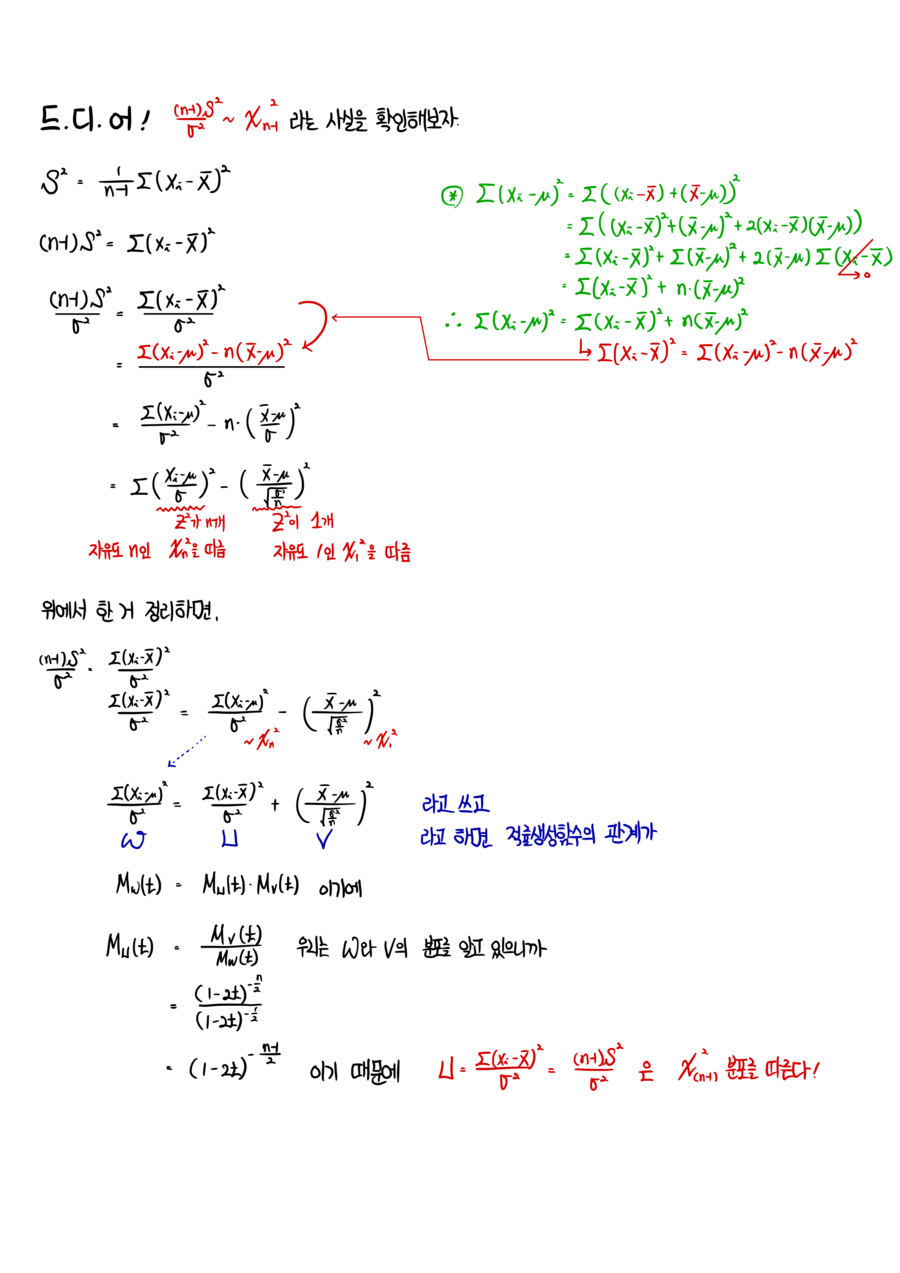 드.디.어! (n-1)S²/σ² ~ χ²ₙ₋₁ 라는 사실을 확인해보자.
S² = 1/(n-1) Σ(Xᵢ-X̄)²
(n-1)S² = Σ(Xᵢ-X̄)²
(n-1)S²/σ² = Σ(Xᵢ-X̄)²/σ²
= (Σ(Xᵢ-μ)² - n(X̄-μ)²)/σ²
= Σ(Xᵢ-μ)²/σ² - n·((X̄-μ)/σ)²
= Σ((Xᵢ-μ)/σ)² - ((X̄-μ)/√(σ²/n))²
Z²가 n개 Z²이 1개
자유도 n인 χ²ₙ을 따름 자유도 1인 χ²₁을 따름
⊛ Σ(Xᵢ-μ)² = Σ((Xᵢ-X̄)+(X̄-μ))²
= Σ((Xᵢ-X̄)²+(X̄-μ)²+2(Xᵢ-X̄)(X̄-μ))
= Σ(Xᵢ-X̄)²+Σ(X̄-μ)²+2(X̄-μ)Σ(Xᵢ-X̄) → 0
= Σ(Xᵢ-X̄)² + n·(X̄-μ)²
∴ Σ(Xᵢ-μ)² = Σ(Xᵢ-X̄)² + n(X̄-μ)²
↳ Σ(Xᵢ-X̄)² = Σ(Xᵢ-μ)² - n(X̄-μ)²
위에서 한 거 정리하면,
(n-1)S²/σ² = Σ(Xᵢ-X̄)²/σ²
Σ(Xᵢ-X̄)²/σ² = Σ(Xᵢ-μ)²/σ² - ((X̄-μ)/√(σ²/n))²
~χ²ₙ ~χ²₁
Σ(Xᵢ-μ)²/σ² = Σ(Xᵢ-X̄)²/σ² + ((X̄-μ)/√(σ²/n))² 라고 쓰고
W U V 라고 하면 적률생성함수의 관계가
M_W(t) = M_U(t)·M_V(t) 이기에
M_U(t) = M_V(t)/M_W(t) 우리는 W와 V의 분포를 알고 있으니까
= (1-2t)^(-n/2)/(1-2t)^(-1/2)
= (1-2t)^(-(n-1)/2) 이기 때문에 U = Σ(Xᵢ-X̄)²/σ² = (n-1)S²/σ² 은 χ²₍ₙ₋₁₎ 분포를 따른다!